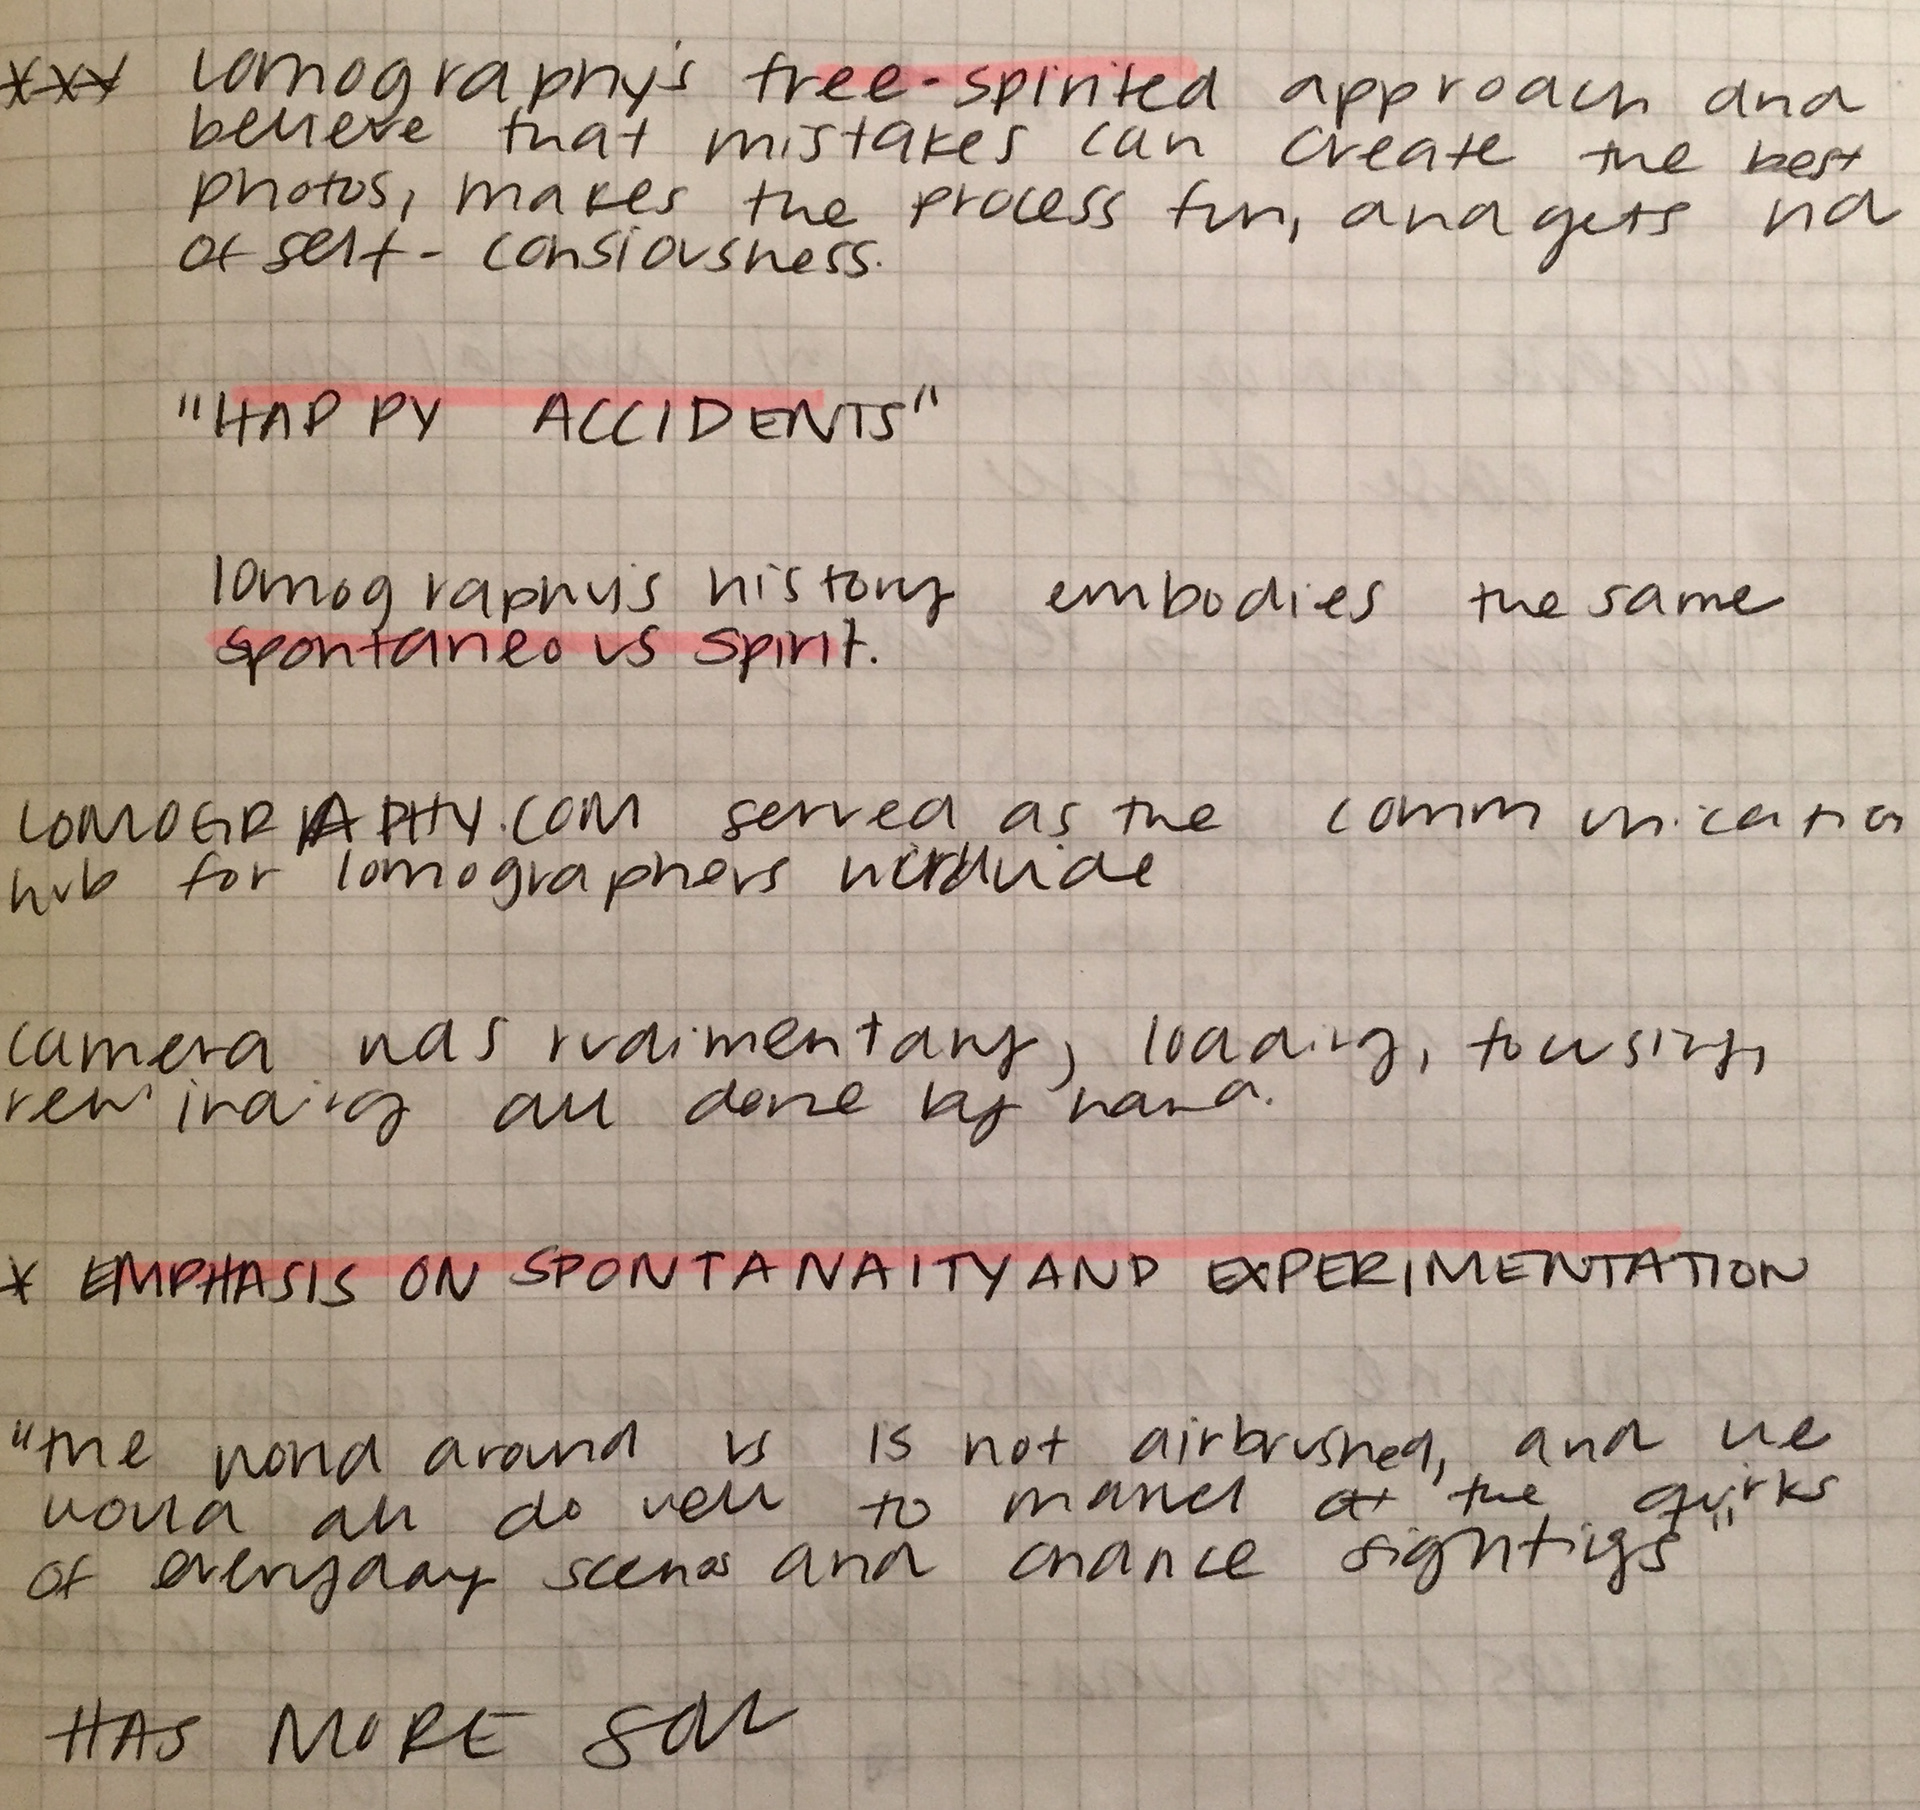 *** Lomography's free-spirited approach and
believe that mistakes can create the best
photos, makes the process fun, and gets rid
of self-consiousness.
"HAPPY ACCIDENTS"
lomography's history embodies the same
spontaneous spirit.
LOMOGRAPHY.COM served as the communication
hub for lomographers worldwide
camera was rudimentary, loading, focusing,
rewinding all done by hand.
* EMPHASIS ON SPONTANAITY AND EXPERIMENTATION
"the world around us is not airbrushed, and we
would all do well to marvel at the quirks
of everyday scenes and chance sightigs"
HAS MORE SOUL